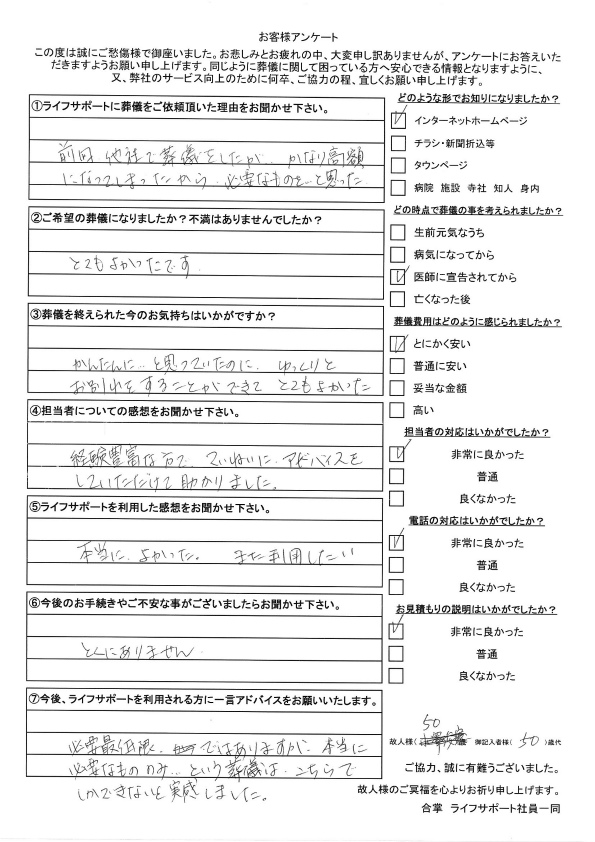 お客様アンケート
この度は誠にご愁傷様で御座いました。お悲しみとお疲れの中、大変申し訳ありませんが、アンケートにお答えいた
だきますようお願い申し上げます。同じように葬儀に関して困っている方へ安心できる情報となりますように、
又、弊社のサービス向上のために何卒、ご協力の程、宜しくお願い申し上げます。
①ライフサポートに葬儀をご依頼頂いた理由をお聞かせ下さい。
前回 他社で葬儀をしたが… かなり高額
になってしまったから 必要なものを…と思った
②ご希望の葬儀になりましたか？不満はありませんでしたか？
とてもよかったです
③葬儀を終えられた今のお気持ちはいかがですか？
かんたんに…と思っていたのに、ゆっくりと
お別れをすることができて とてもよかった
④担当者についての感想をお聞かせ下さい。
経験豊富な方で ていねいに アドバイスを
していただけて助かりました。
⑤ライフサポートを利用した感想をお聞かせ下さい。
本当に、よかった。 また利用したい
⑥今後のお手続きやご不安な事がございましたらお聞かせ下さい。
とくにありません
⑦今後、ライフサポートを利用される方に一言アドバイスをお願いいたします。
必要最低限、ではありますが、本当に
必要なもののみ…という葬儀は、こちらで
しかできないと実感しました。
どのような形でお知りになりましたか？
インターネットホームページ
チラシ・新聞折込等
タウンページ
病院 施設 寺社 知人 身内
どの時点で葬儀の事を考えられましたか？
生前元気なうち
病気になってから
医師に宣告されてから
亡くなった後
葬儀費用はどのように感じられましたか？
とにかく安い
普通に安い
妥当な金額
高い
担当者の対応はいかがでしたか？
非常に良かった
普通
良くなかった
電話の対応はいかがでしたか？
非常に良かった
普通
良くなかった
お見積もりの説明はいかがでしたか？
非常に良かった
普通
良くなかった
50
故人様( )歳 御記入者様( 50 )歳代
ご協力、誠に有難うございました。
故人様のご冥福を心よりお祈り申し上げます。
合掌 ライフサポート社員一同